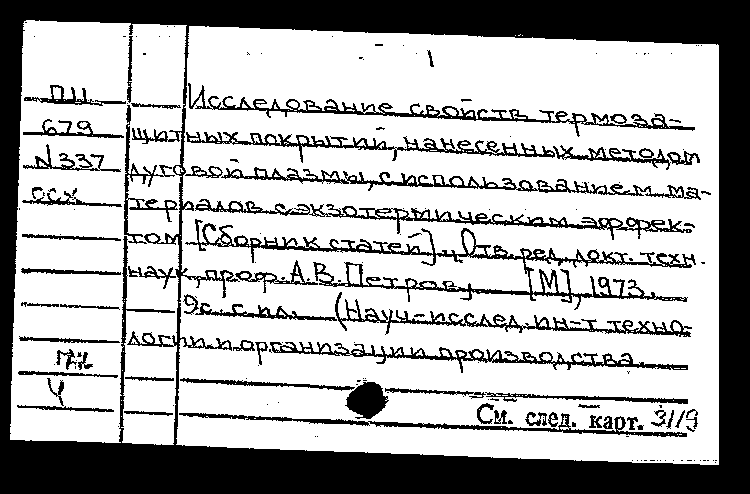 1
П11 Исследование свойств термоза-
679 щитных покрытий, нанесенных методом
N337 дуговой плазмы, с использованием ма-
осх териалов с экзотермическим эффек-
том [Сборник статей]. Отв. ред. докт. техн.
наук, проф. А.В. Петров. [М], 1973.
9с. с ил. (Науч-исслед. ин-т техно-
логии и организации производства.
Ч
См. след. карт. 3119